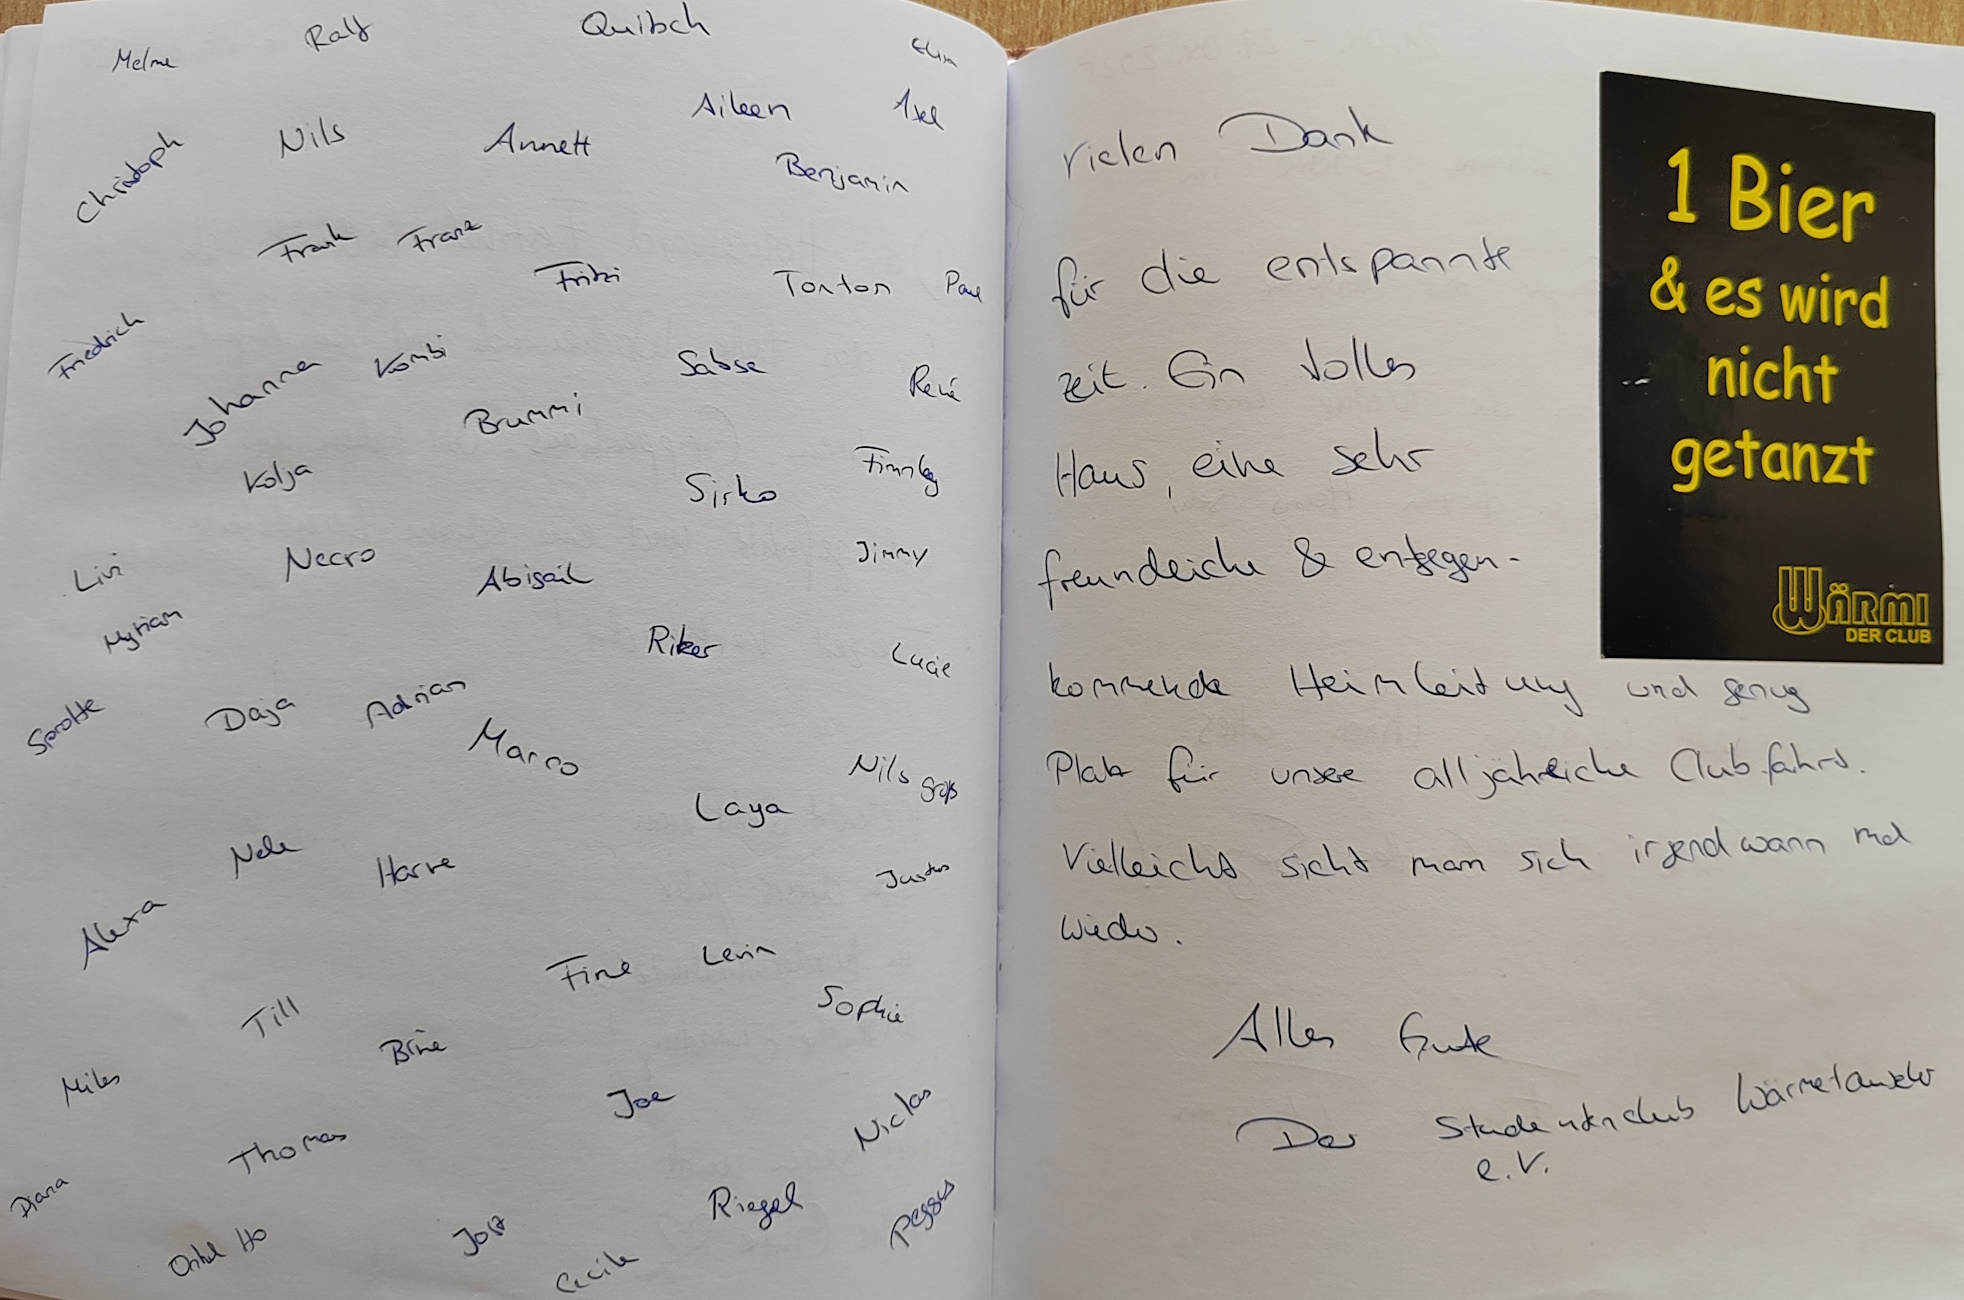 Ralf
Quibsch
Christoph
Nils
Annett
Aileen
Axel
Benjamin
Frank
Franz
Fritzi
Tonton
Paul
Friedrich
Johanna
Kombi
Sabse
René
Brummi
Kolja
Sirko
Finnley
Livi
Necro
Abigail
Jimmy
Myriam
Riker
Lucie
Sprotte
Daja
Adrian
Marco
Nils
Laya
Nele
Justus
Alexa
Fine
Levin
Till
Sophie
Bine
Miles
Joe
Niclas
Thomas
Diana
Riegel
Onkel Ho
Cecile
vielen Dank
für die entspannte
Zeit. Ein tolles
Haus, eine sehr
freundliche & entgegen-
kommende Heimleitung und genug
Platz für unsere alljährliche Clubfahrt.
Vielleicht sieht man sich irgendwann mal
wieder.
Alles Gute
Der Studentenclub Wärmetauscher
e.V.
1 Bier
& es wird
nicht
getanzt
WÄRMI
DER CLUB